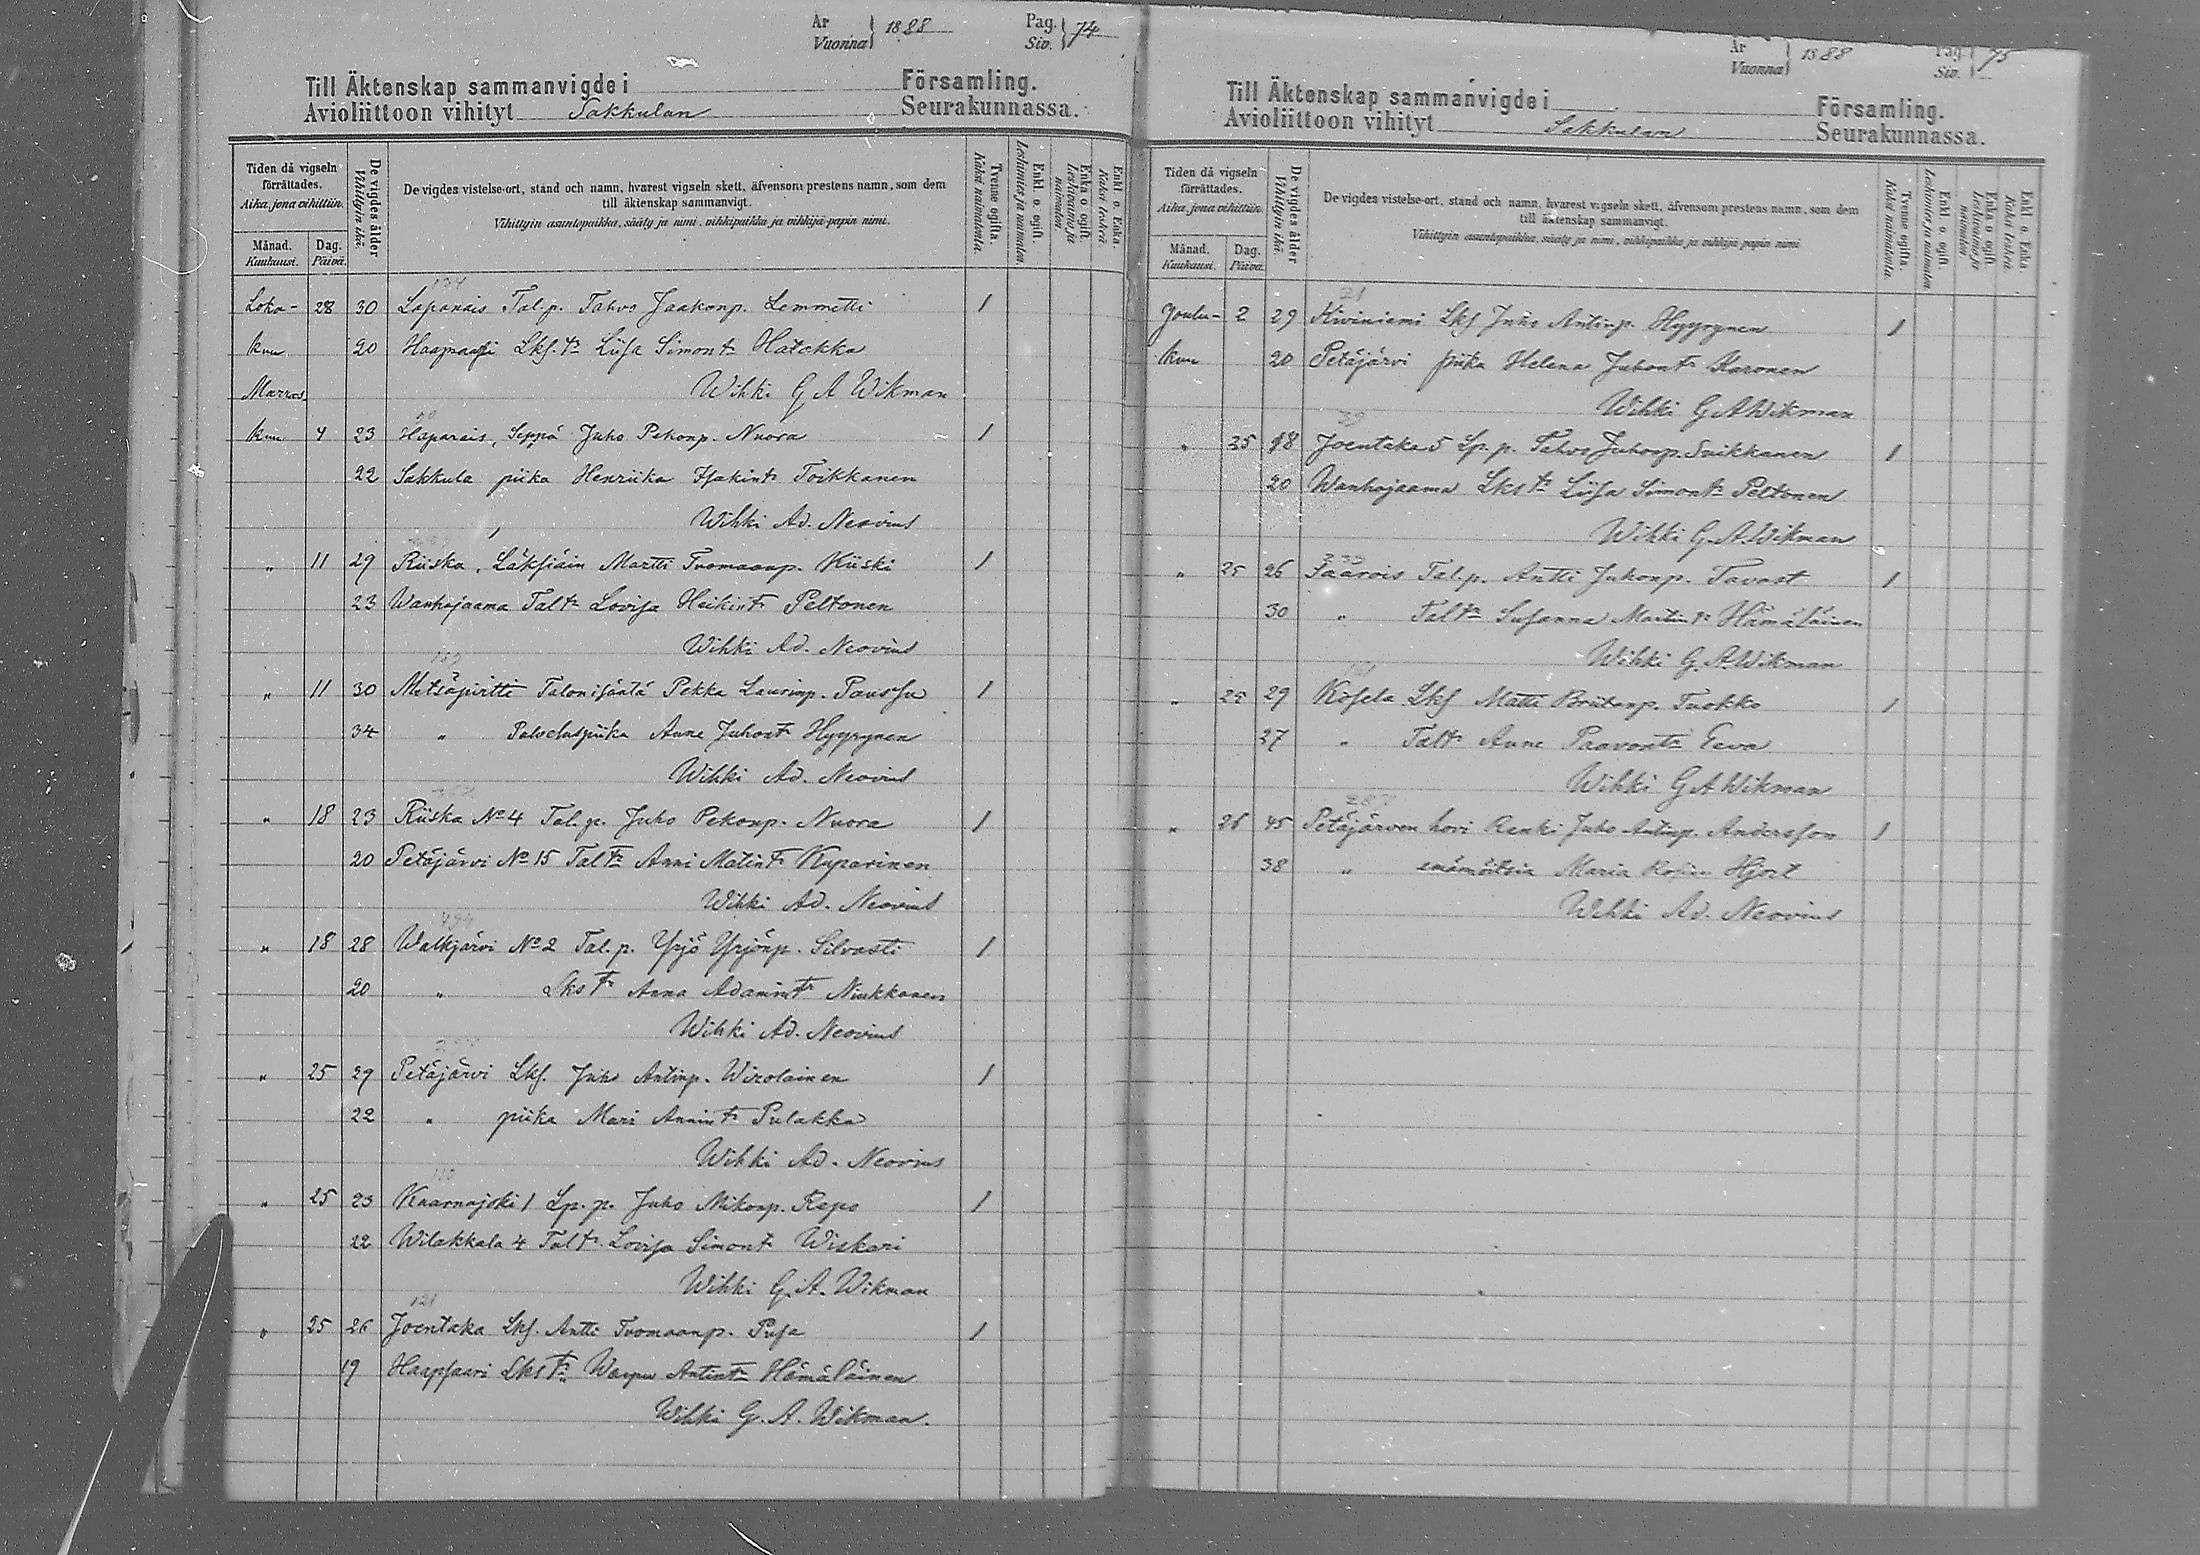 År
Vuonna 1888
Pag.
Siv. 74
Till Äktenskap sammanvigde i Församling.
Avioliittoon vihityt Sakkulan Seurakunnassa.
Tiden då vigseln förrättades.
Aika, jona vihittiin.
Månad.
Kuukausi.
Dag.
Päivä.
De vigdes ålder
Vihittyin ikä.
De vigdes vistelse-ort, stånd och namn, hvarest vigseln skett, äfvensom prestens namn, som dem
till äktenskap sammanvigt.
Vihittyin asuntopaikka, sääty ja nimi, vihkipaikka ja vihkijä-papin nimi.
Tvenne ogifta.
Kaksi naimatonta.
Enkl. o. ogift.
Leskimies ja naimaton.
Enka o. ogift.
Leskivaimo ja naimaton.
Enkl. o. Enka.
Kaksi leskeä.
Loka- 28 30 Lapanais Tal.p. Tahvo Jaakonp. Lemmetti 1
kuu 20 Haapsaari Lks. tr Liisa Simontr Hatakka
Marras- Wihki G A Wikman
kuu 4 23 Haparais, Seppä Juho Pekonp. Nuora 1
22 Sakkula piika Henriika Isakintr Toikkanen
Wihki Ad. Neovius
" 11 29 Riiska, Läksiäin Martti Tuomaanp. Kiiski 1
23 Wanhajaama Taltr Lovisa Heikintr Peltonen
Wihki Ad. Neovius
" 11 30 Metsäpirtti Talonisäntä Pekka Laurinp. Paussu 1
34 " Palveluspiika Anne Juhontr Hyyrynen
Wihki Ad. Neovius
" 18 23 Riiska No 4 Tal.p. Juho Pekonp. Nuora 1
20 Petäjärvi No 15 Taltr Anni Matintr Kuparinen
Wihki Ad. Neovius
" 18 28 Walkjärvi No 2 Tal.p. Yrjö Yrjönp. Silvasti 1
20 " Lkstr Anna Adamintr Ninkkonen
Wihki Ad. Neovius
" 25 29 Petäjärvi Lks. Juho Antinp. Wirolainen 1
22 " piika Mari Annintr Pulakka
Wihki Ad. Neovius
" 25 23 Kaarnajoki 1 Lp.p. Juho Mikonp. Repo 1
22 Wilakkala 4 Taltr Lovisa Simontr Wiskari
Wihki G.A. Wikman
121
" 25 26 Joentaka Lks. Antti Tuomaanp. Pusa 1
19 Haapsaari Lkstr Warpu Antintr Hämäläinen
Wihki G.A. Wikman.
År
Vuonna 1888
Pag.
Siv. 75
Till Äktenskap sammanvigde i Församling.
Avioliittoon vihityt Sakkulan Seurakunnassa.
Tiden då vigseln förrättades.
Aika, jona vihittiin.
Månad.
Kuukausi.
Dag.
Päivä.
De vigdes ålder
Vihittyin ikä.
De vigdes vistelse-ort, stånd och namn, hvarest vigseln skett, äfvensom prestens namn, som dem
till äktenskap sammanvigt.
Vihittyin asuntopaikka, sääty ja nimi, vihkipaikka ja vihkijä-papin nimi
Tvenne ogifta.
Kaksi naimatonta.
Enkl. o. ogift.
Leskimies ja naimaton.
Enka o. ogift.
Leskivaimo ja naimaton.
Enkl. o. Enka
Kaksi leskeä.
21
Joulu- 2 29 Kiviniemi Lks Juho Antinp. Hyyrynen 1
kuu 20 Petäjärvi piika Helena Juhontr Karonen
Wihki G A Wikman
39
" 25 18 Joentaka 5 Lp.p. Tahvo Juhonp. Suikkanen 1
20 Wanhajaama Lkstr Liisa Simontr Peltonen
Wihki G.A. Wikman
239
" 25 26 Saarois Tal.p. Antti Juhonp. Tavast 1
30 " Taltr Susanna Martintr Hämäläinen
Wihki G.A. Wikman
" 25 29 Kosela Lks Matti Priitanp. Tuokko 1
27 " Taltr Anne Paavontr Eeva
Wihki G A Wikman
" 26 45 Petäjärven hovi Renki Juho Antinp. Andersson 1
38 " emännöitsiä Maria Rosina Hjort
Wihki Ad. Neovius